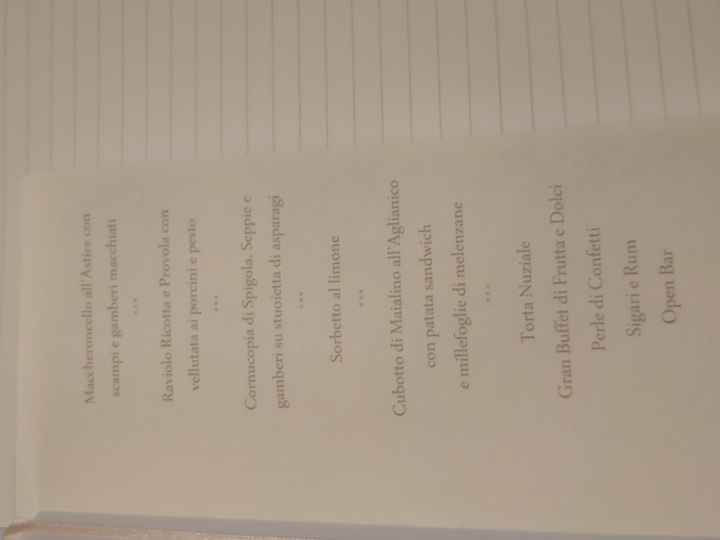 Maccheroncello all'Astice con
scampi e gamberi macchiati
***
Raviolo Ricotta e Provola con
vellutata ai porcini e pesto
***
Cornucopia di Spigola, Seppie e
gamberi su stuoietta di asparagi
***
Sorbetto al limone
***
Cubotto di Maialino all'Aglianico
con patata sandwich
e millefoglie di melenzane
***
Torta Nuziale
Gran Buffet di Frutta e Dolci
Perle di Confetti
Sigari e Rum
Open Bar